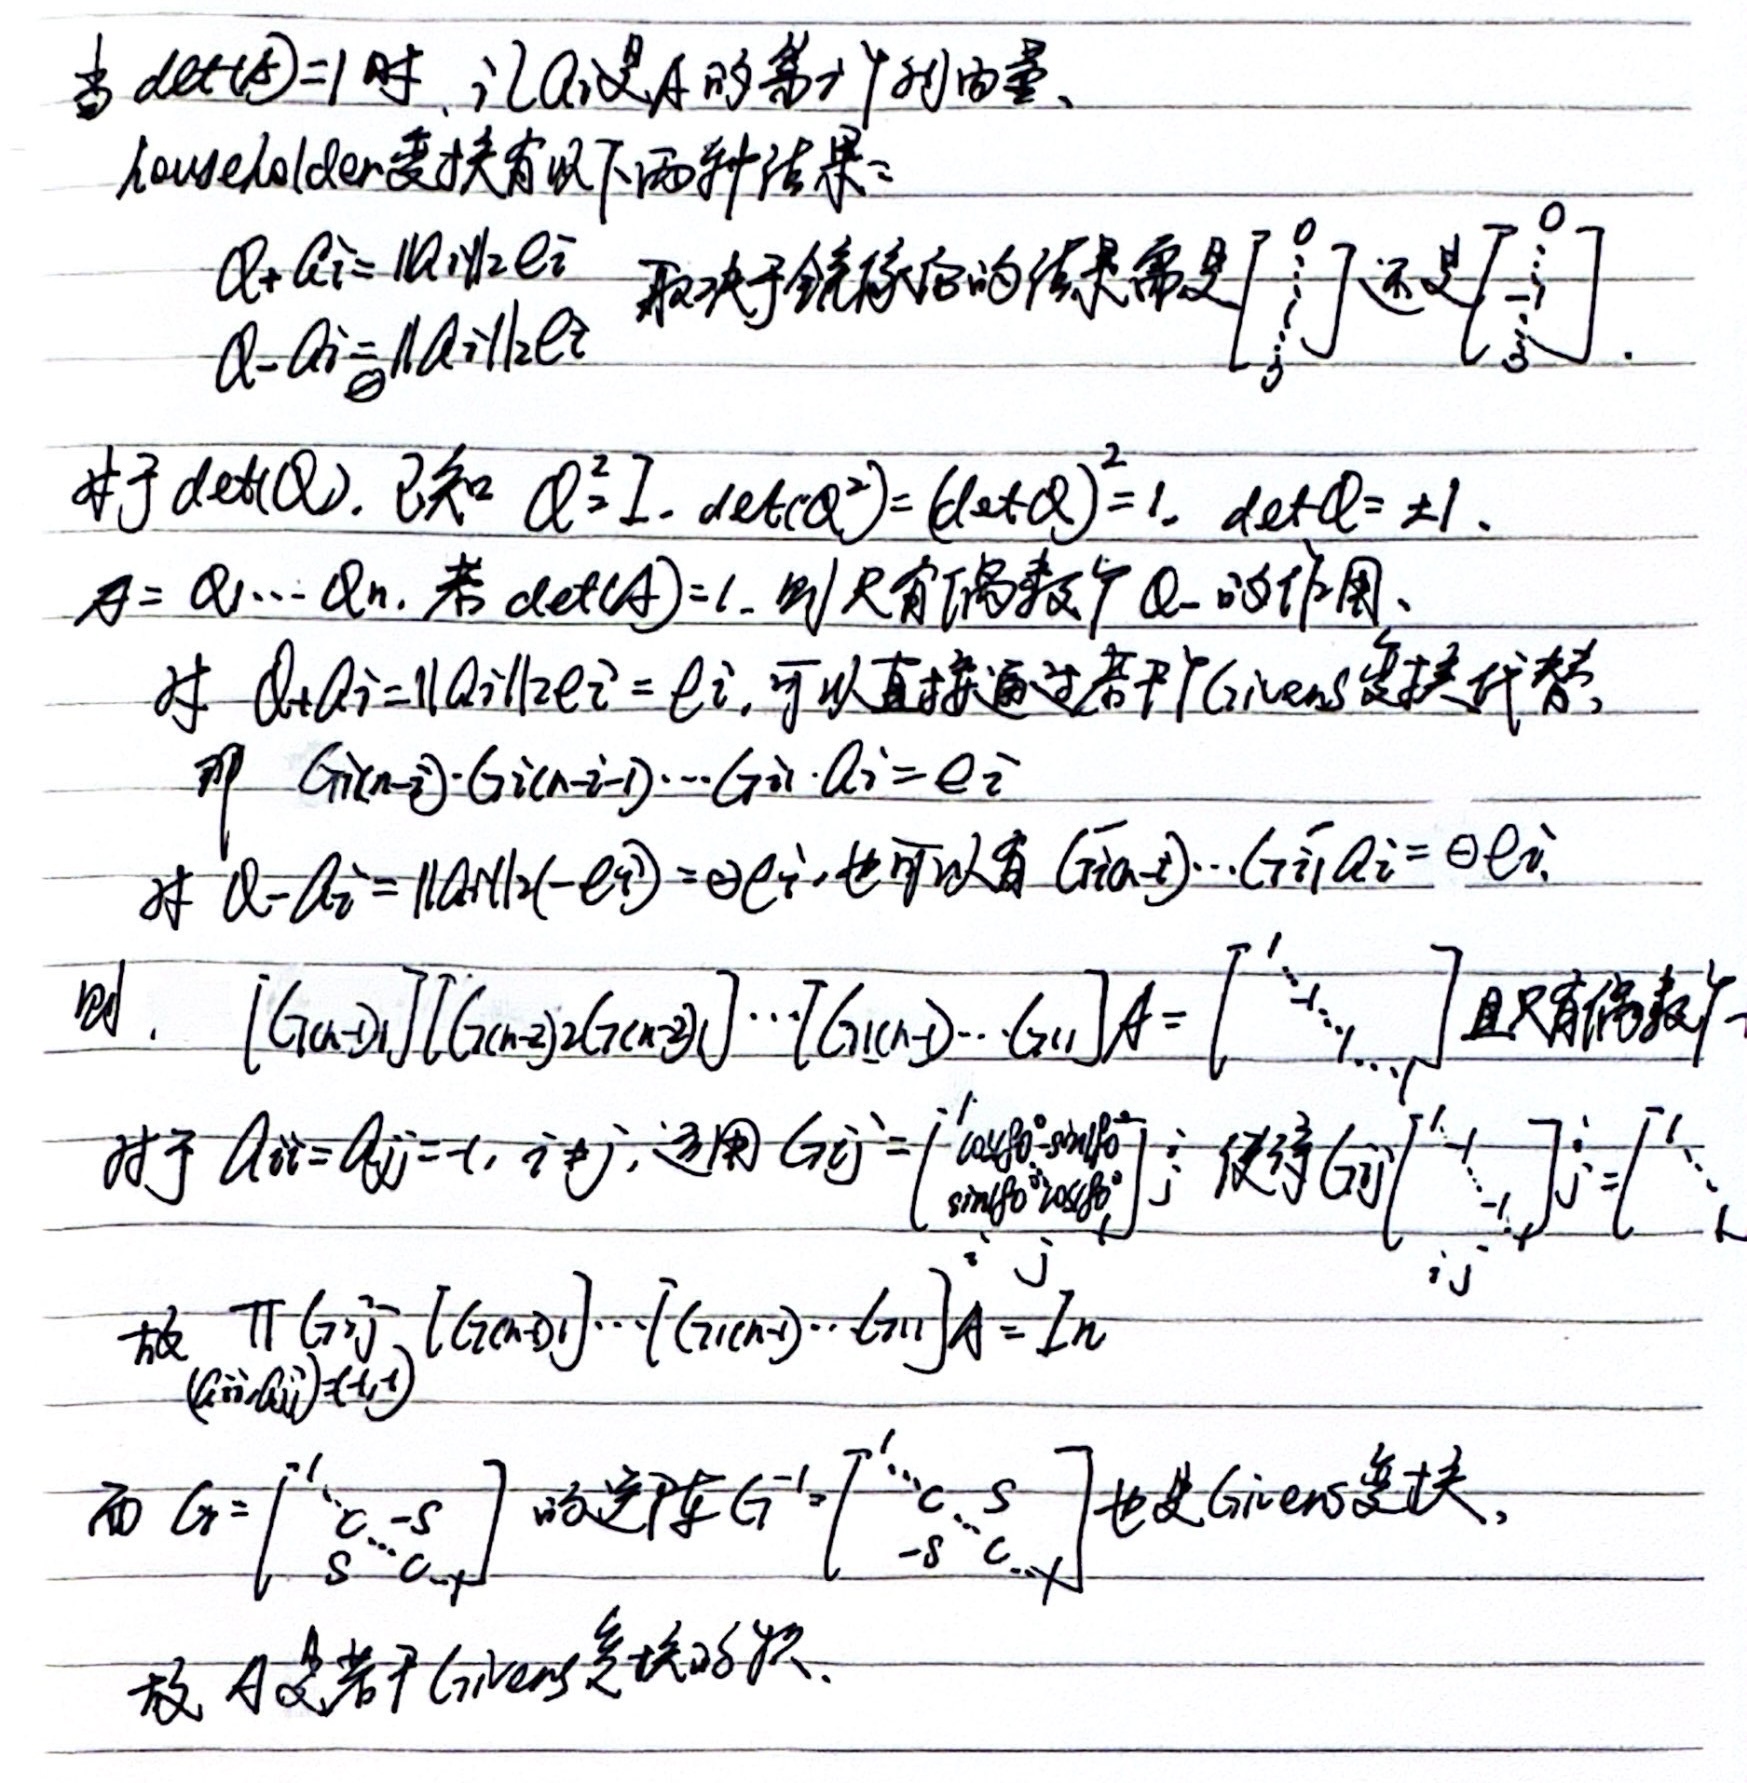 当 det(A)=1 时, 记 ai 是 A 的第 i 个列向量、
householder变换有以下两种结果:
Q+ ai = ||ai||2 ei 取决于镜像后的结果需是 [0 ⋮ 1 ⋮ 0] 还是 [0 ⋮ -1 ⋮ 0].
Q- ai = ⊖||ai||2 ei
对于 det(Q). 已知 Q²=I. det(Q²)=(detQ)²=1. detQ=±1.
A = Q1⋯Qn. 若 det(A)=1. 则只有偶数个 Q- 的作用、
对 Q+ai=||ai||2ei=ei, 可以直接通过若干个Givens变换代替,
即 Gi(n-i)·Gi(n-i-1)⋯Gi1·ai=ei
对 Q-ai=||ai||2(-ei)=⊖ei, 也可以有 Gi(n-i)⋯Gi1 ai=⊖ei.
则. [G(n-1)1][G(n-2)2G(n-2)1]⋯[G1(n-1)⋯G11]A=[1 ⋱ -1 ⋱ 1 ⋱ 1] 且只有偶数个-
对于 aii=ajj=-1, i≠j, 运用 Gij=[1 cos180° -sin180° sin180° cos180° 1] i j 使得 Gij[1 ⋱ -1 ⋱ -1 ⋱ 1] i j=[1 ⋱ 1
i j i j
故 ∏Gij [G(n-1)1]⋯[G1(n-1)⋯G11]A=In
(aii,ajj)=(-1,-1)
而 G=[1 ⋱ c -s ⋱ s c ⋱ 1] 的逆阵 G⁻¹=[1 ⋱ c s ⋱ -s c ⋱ 1] 也是Givens变换,
故 A 是若干Givens变换的积.